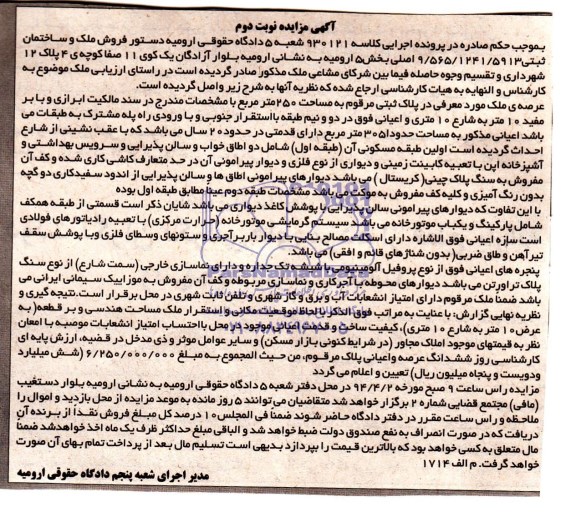 آگهی مزایده نوبت دوم
بموجب حکم صادره در پرونده اجرایی کلاسه ۹۳۰۱۲۱ شعبه ۵ دادگاه حقوقی ارومیه دستور فروش ملک و ساختمان
ثبتی ۹/۵۶۵/۱۲۴۱/۵۹۱۳ اصلی بخش ۵ ارومیه به نشانی ارومیه بلوار آزادگان یک کوی ۱۱ صفا کوچه ی ۴ پلاک ۱۲
شهرداری و تقسیم وجوه حاصله فیما بین شرکای مشاعی ملک مذکور صادر گردیده است در راستای ارزیابی ملک موضوع به
کارشناس و النهایه به هیات کارشناسی ارجاع شده که نظریه آنها به شرح زیر واصل گردیده است.
عرصه ی ملک مورد معرفی در پلاک ثبتی مرقوم به مساحت ۲۵۰ متر مربع با مشخصات مندرج در سند مالکیت ابرازی و با بر
مفید ۱۰ متر به شارع ۱۰ متری و اعیانی فوق در دو و نیم طبقه با استقرار جنوبی و با ورودی راه پله مشترک به طبقات می
باشد اعیانی مذکور به مساحت حدودا ۳۰۵ متر مربع دارای قدمتی در حدود ۲۰ سال می باشد که با عقب نشینی از شارع
احداث گردیده است اولین طبقه مسکونی آن (طبقه اول) شامل دو اطاق خواب و سالن پذیرایی و سرویس بهداشتی و
آشپزخانه اپن با تعبیه کابینت زمینی و دیواری از نوع فلزی و دیوار پیرامونی آن در حد متعارف کاشی کاری شده و کف آن
مفروش به سنگ پلاک چینی (کریستال) می باشد دیوارهای پیرامونی اطاق ها و سالن پذیرایی از اندود سفیدکاری دو گچه
بدون رنگ آمیزی و کلیه کف مفروش به موکت می باشد مشخصات طبقه دوم عینا مطابق طبقه اول بوده
با این تفاوت که دیوارهای پیرامونی سالن پذیرایی با پوشش کاغذ دیواری می باشد شایان ذکر است قسمتی از طبقه همکف
شامل پارکینگ و یکباب موتورخانه می باشد سیستم گرمایشی موتورخانه (حرارت مرکزی) با تعبیه رادیاتورهای فولادی
است سازه اعیانی فوق الاشاره دارای اسکلت مصالح بنایی با دیوار باربر آجری و ستونهای وسطی فلزی و با پوشش سقف
تیرآهن و طاق ضربی (بدون شناژهای قائم و افقی) می باشد.
پنجره های اعیانی فوق از نوع پروفیل آلومینیومی با شیشه تک جداره و دارای نماسازی خارجی (سمت شارع) از نوع سنگ
پلاک تراورتن می باشد دیوارهای محوطه با آجرکاری و نماسازی مربوطه و کف آن مفروش به موزاییک سیمانی ایرانی می
باشد ضمنا ملک مرقوم دارای امتیاز انشعابات آب و برق و گاز شهری و تلفن ثابت شهری در محل برقرار است. نتیجه گیری و
نظریه نهایی گزارش: با عنایت به مراتب فوق الذکر با لحاظ موقعیت مکانی و استقرار ملک مساحت هندسی و بر قطعه (به
عرض ۱۰ متر به شارع ۱۰ متری)، کیفیت ساخت و قدمت اعیانی موجود در محل با احتساب امتیاز انشعابات موصبه با امعان
نظر به قیمتهای موجود املاک مجاور (در شرایط کنونی بازار مسکن) و سایر عوامل موثر و ذی مدخل در قضیه، ارزش پایه ای
کارشناسی روز ششدانگ عرصه و اعیانی پلاک مرقوم، من حیث المجموع به مبلغ ۶/۲۵۰/۰۰۰/۰۰۰ (شش میلیارد
و دویست و پنجاه میلیون ریال) تعیین و اعلام می گردد
مزایده راس ساعت ۹ صبح مورخه ۹۴/۴/۲ در محل دفتر شعبه ۵ دادگاه حقوقی ارومیه به نشانی ارومیه بلوار دستغیب
(مافی) مجتمع قضایی شماره ۲ برگزار خواهد شد متقاضیان می توانند ۵ روز مانده به موعد مزایده از محل بازدید و اموال را
ملاحظه و راس ساعت مقرر در دفتر دادگاه حاضر شوند ضمنا فی المجلس ۱۰ درصد کل مبلغ فروش نقدا از برنده آن
دریافت که در صورت انصراف به نفع صندوق دولت ضبط خواهد شد و الباقی مبلغ حداکثر ظرف یک ماه اخذ خواهد شد ضمنا
مال متعلق به کسی خواهد بود که بالاترین قیمت را بپردازد بدیهی است تسلیم مال بعد از پرداخت تمام بهای آن صورت
خواهد گرفت. م الف ۱۷۱۴
مدیر اجرای شعبه پنجم دادگاه حقوقی ارومیه